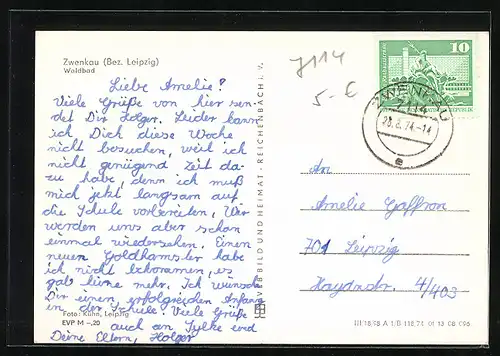 Zwenkau (Bez. Leipzig)
Waldbad
7114
5-€
Liebe Amelie!
Viele Grüße von hier sen-
det Dir Holger. Leider kann
ich Dich diese Woche
nicht besuchen, weil ich
nicht genügend Zeit da-
zu habe, denn ich muß
mich jetzt langsam auf
die Schule vorbereiten. Wir
werden uns aber schon
einmal wiedersehen. Einen
neuen Goldhamster habe
ich nicht bekommen, es
gab keine mehr. Ich wünsche
Dir einen erfolgreichen Anfang
in der Schule. Viele Grüße
auch an Sylke und
Deine Eltern, Holger
Foto: Kühn, Leipzig
EVP M -,20
BILD UND HEIMAT · REICHENBACH i. V.
10
ZWENKAU
7114
28.8.74-14
e
An
Amelie Gaffron
701 Leipzig
Haydnstr. 4/403